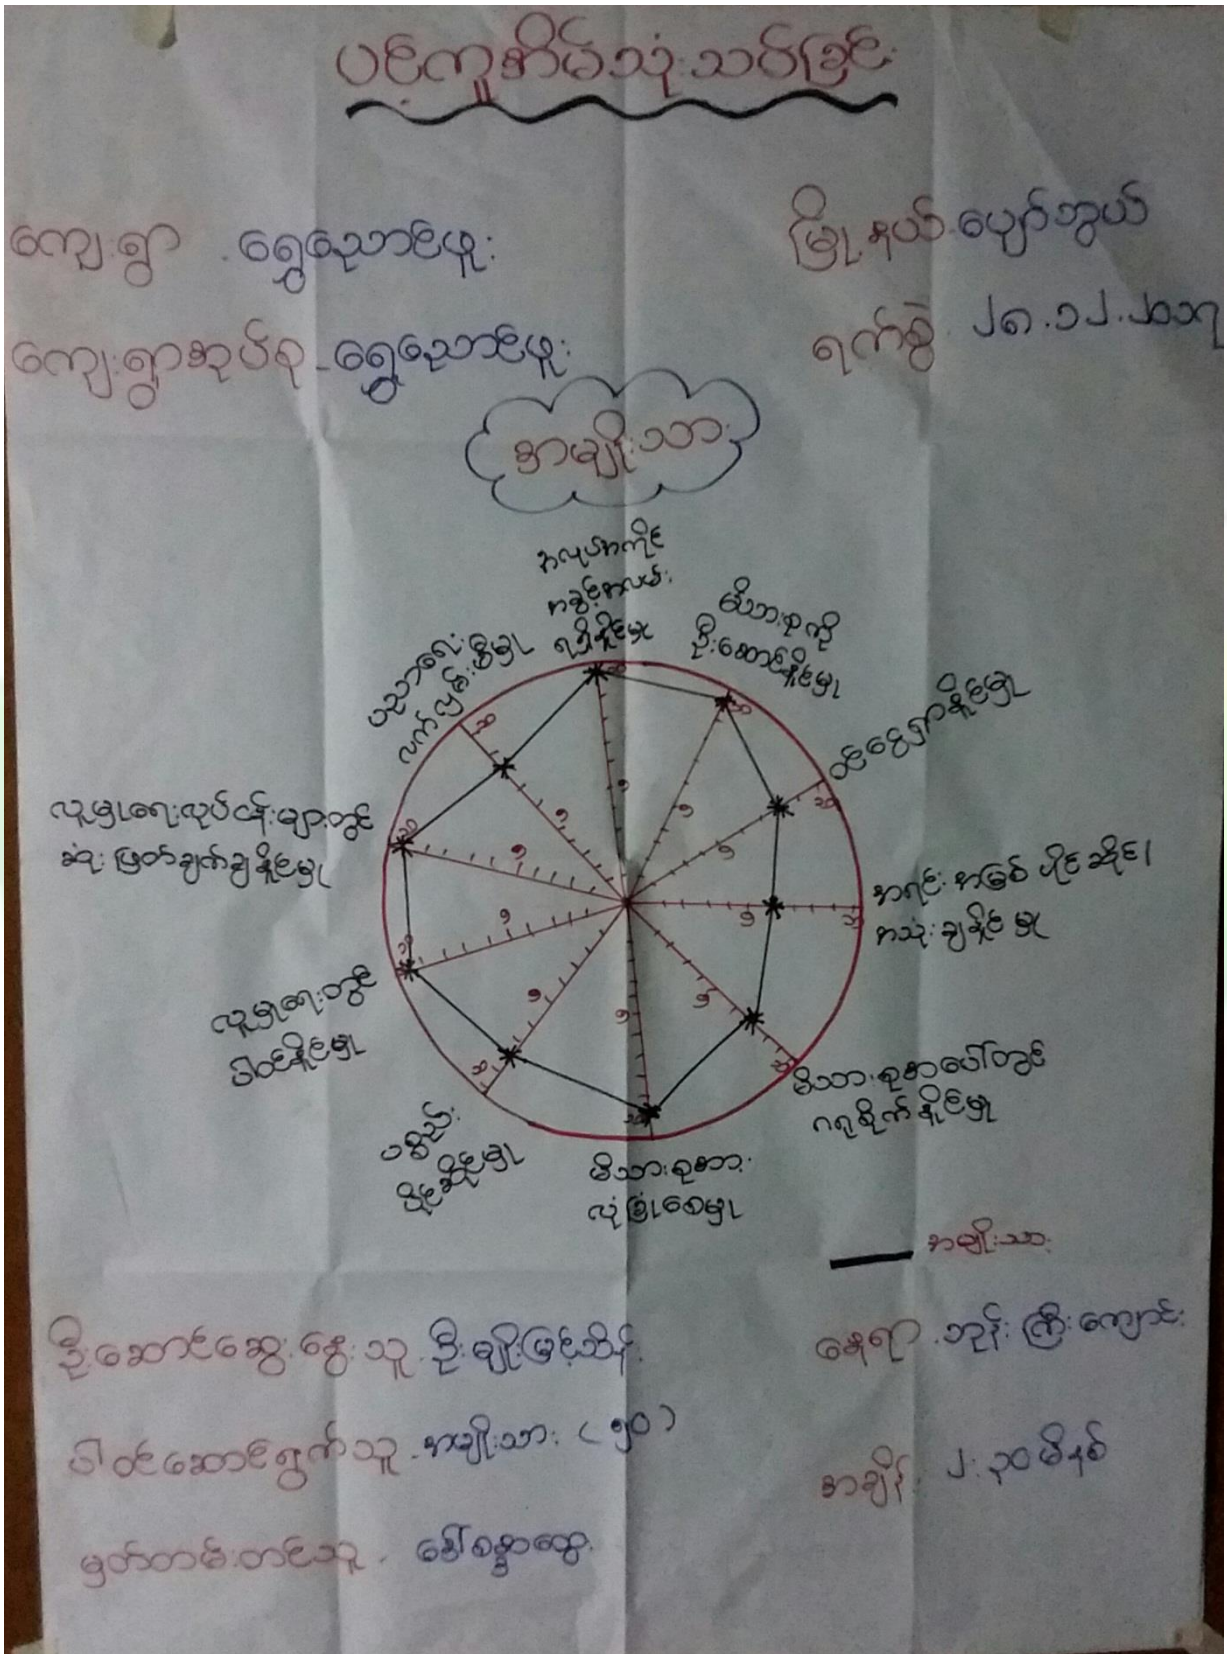 ပင့်ကူအိမ်သုံးသပ်ခြင်း
ကျေးရွာ - ရွှေညောင်ဖူး
မြို့နယ် - ပျော်ဘွယ်
ကျေးရွာအုပ်စု - ရွှေညောင်ဖူး
ရက်စွဲ - ၂၈.၁၂.၂၀၁၇
အမျိုးသား
အလုပ်အကိုင်
အခွင့်အလမ်း
ရရှိနိုင်မှု
မိသားစုကို
ဦးဆောင်နိုင်မှု
ဝင်ငွေရှာနိုင်မှု
အရင်းအမြစ် ပိုင်ဆိုင်၊
အသုံးချနိုင်မှု
မိသားစုအပေါ်တွင်
ဂရုစိုက်နိုင်မှု
မိသားစုအား
လုံခြုံစေမှု
ပစ္စည်း
ပိုင်ဆိုင်မှု
လူမှုရေးတွင်
ပါဝင်နိုင်မှု
လူမှုရေးလုပ်ငန်းများတွင်
ဆုံးဖြတ်ချက်ချနိုင်မှု
ပညာရေး
လက်လှမ်းမီမှု
၁၀
၅
၁၀
၅
၁၀
၅
၁၀
၅
၁၀
၅
၁၀
၅
၁၀
၅
၁၀
၅
၁၀
၅
၁၀
၅
အမျိုးသား
ဦးဆောင်ဆွေးနွေးသူ - ဦးမျိုးမြင့်သိန်း
နေရာ - ဘုန်းကြီးကျောင်း
ပါဝင်ဆောင်ရွက်သူ - အမျိုးသား (၅၀)
အချိန် - ၂:၃၀ မိနစ်
မှတ်တမ်းတင်သူ - ဒေါ်စန္ဒာထွေး